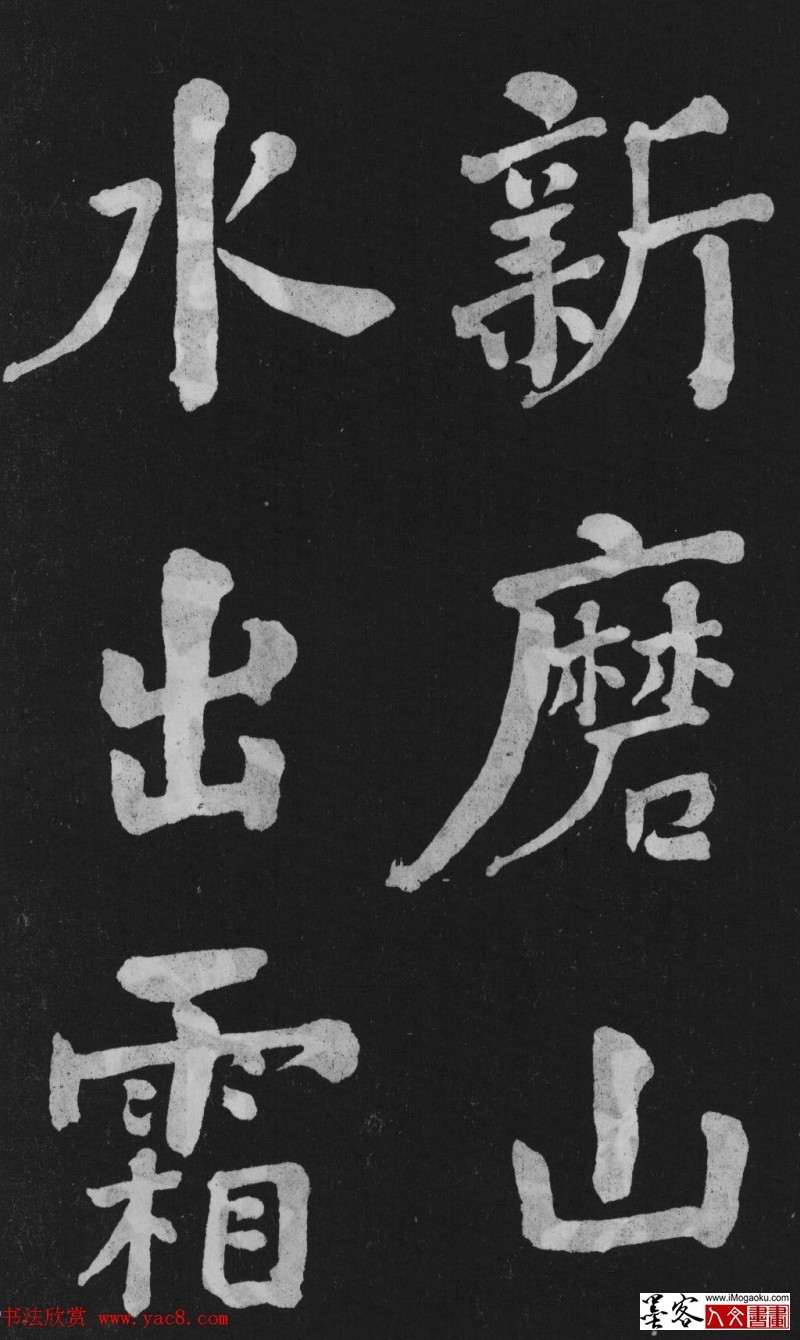 新磨山
水出霜
书法欣赏 www.yac8.com
www.iMogaoku.com
墨客
人文書畫